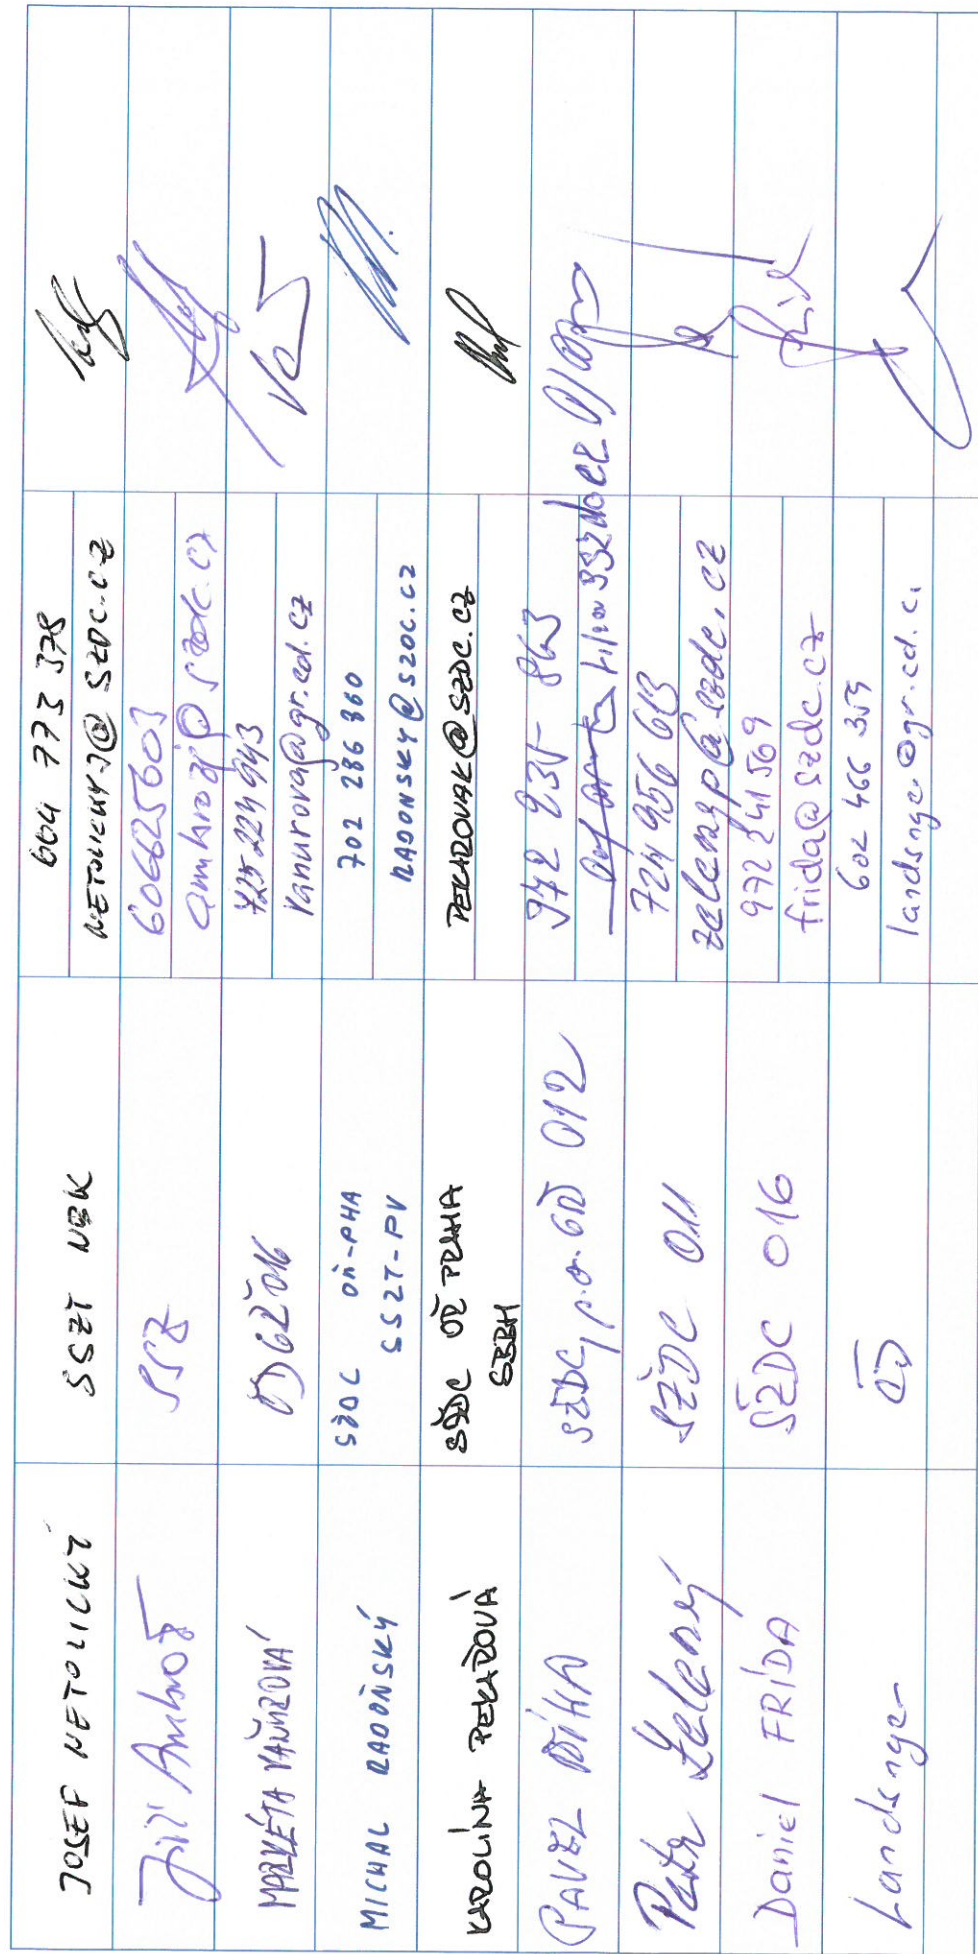 JOSEF NETOLICKÝ
SSZT NBK
604 773 378
NETOLICKYJ@SZDC.CZ
Jiří Ambrož
SSZ
606625603
ambrozj@szdc.cz
MARKÉTA VAŇUROVÁ
725 224 943
vanurova@gr.cd.cz
MICHAL RADOŇSKÝ
SŽDC OŘ-PHA
SSZT-PV
702 286 860
RADONSKY@SZDC.CZ
KAROLÍNA PEKAŘOVÁ
SŽDC OŘ PRAHA
SBBH
PEKAROVAK@SZDC.CZ
PAVEL
SŽDC, p.o. GŘ O12
972 235 863
Petr Zelený
SŽDC O11
724 956 613
zelenyp@szdc.cz
Daniel FRÍDA
SŽDC O16
972 241 569
frida@szdc.cz
Landsinger
ČD
602 466 359